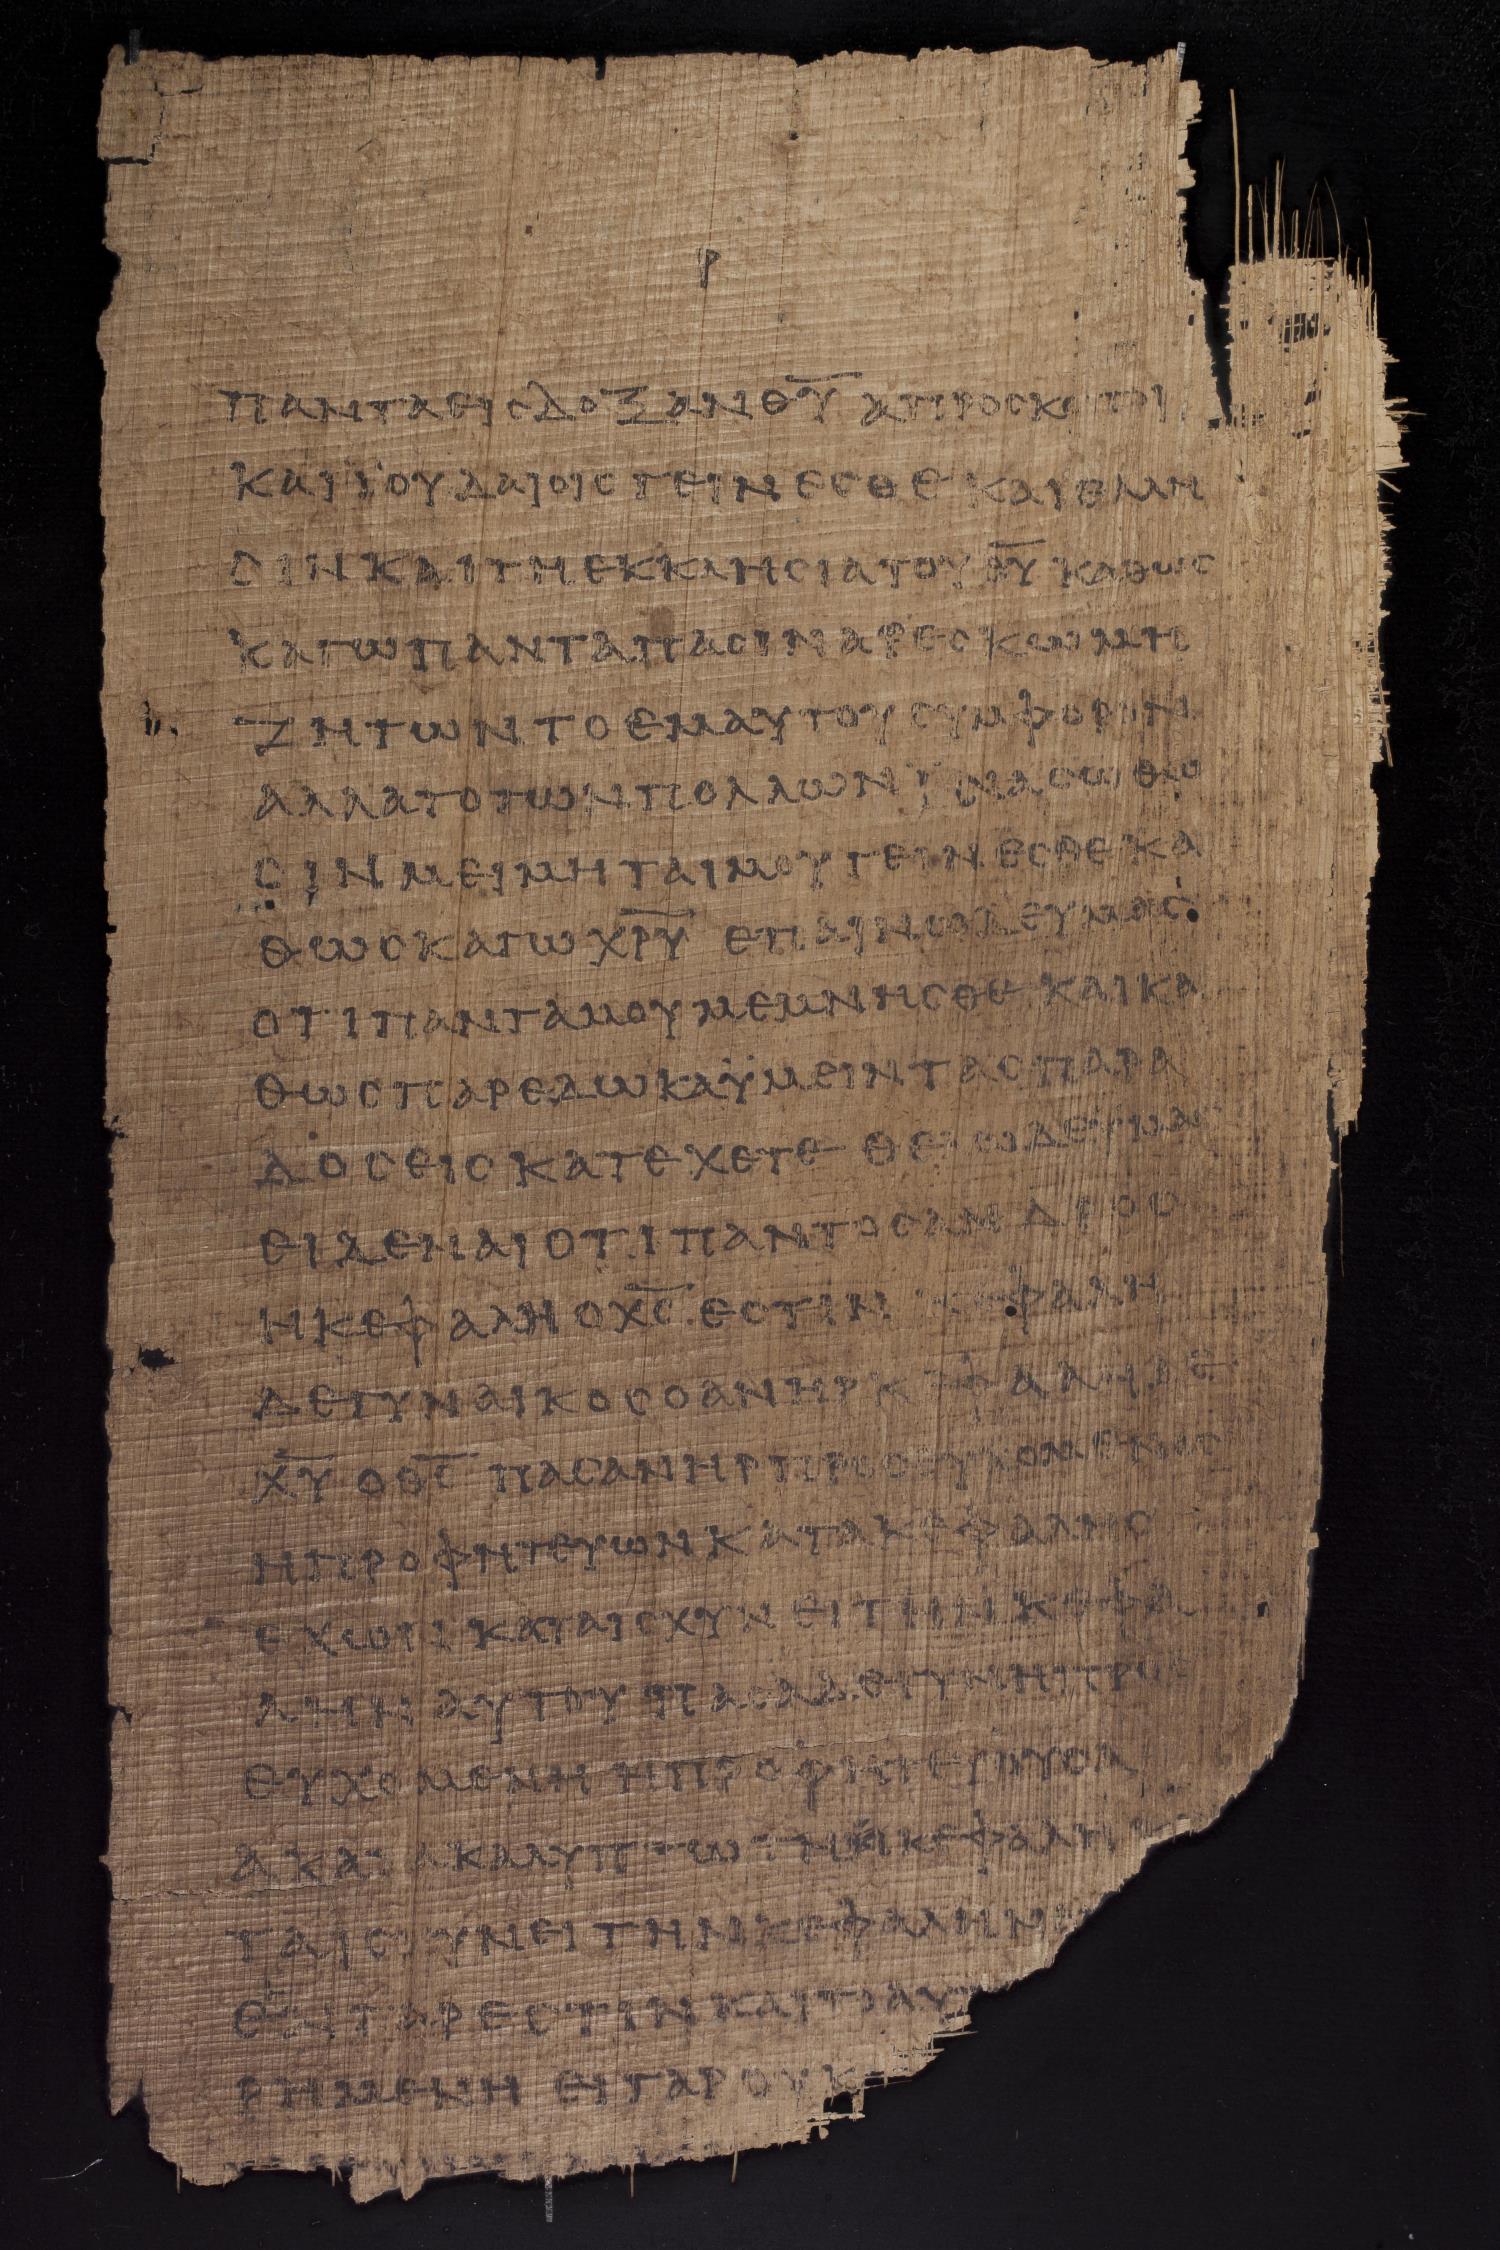 ρ
πανταειςδοξανθ̅υ̅ απροσκοποι
καιϊουδαιοιςγεινεσθεκαιελλη
σινκαιτηεκκλησιατουθ̅υ̅ καθως
καγωπανταπασιναρεσκωμη
ζητωντοεμαυτουσυμφορον
αλλατοτωνπολλωνϊνασωθω
σινμειμηταιμουγεινεσθεκα
θωσκαγωχ̅ρ̅υ̅ επαινωδευμας
οτιπανταμουμεμνησθεκαικα
θωσπαρεδωκαϋμειντασπαρα
δοσειςκατεχετε θελωδευμας
ειδεναιοτιπαντοσανδρος
ηκεφαληοχ̅ς̅ εστιν κεφαλη
δεγυναικοσοανηρκεφαληδε
χ̅υ̅ οθ̅ς̅ πασανηρπροσευχομενος
ηπροφητευωνκατακεφαλης
εχων καταισχυνειτηνκεφα
ληναυτουπασαδεγυνηπροσ
ευχομενηηπροφητε
ακατακαλυπτωτη κεφαλη
ταισχυνειτηνκεφαλην
ενγαρεστινκαιτοαυ
ρημενη ειγαρουκ